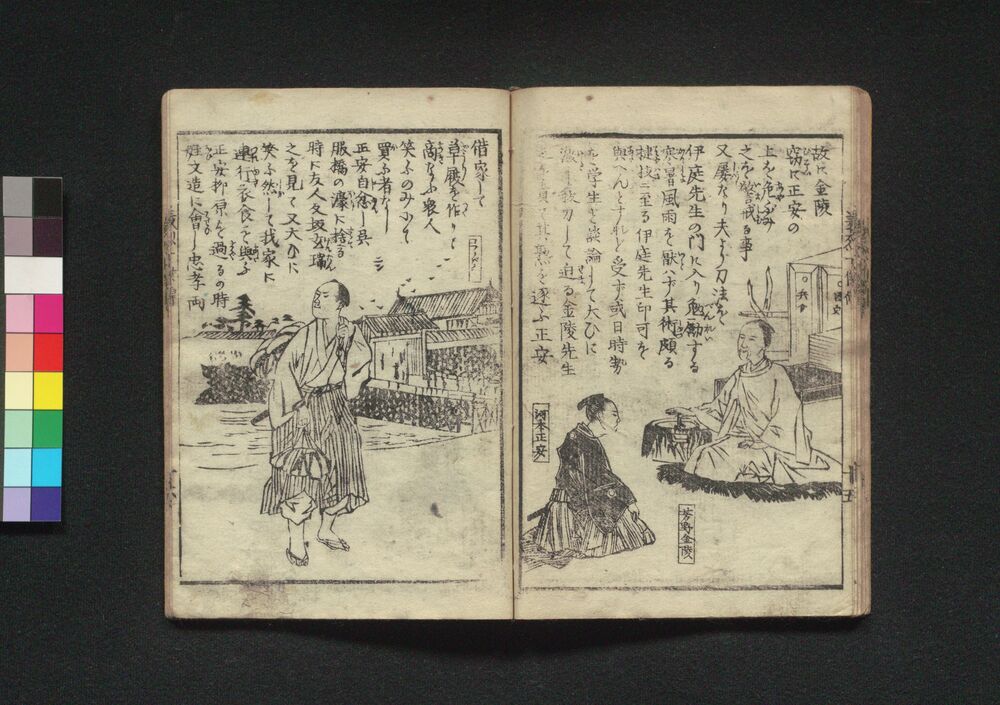 故に金陵
窃に正安の
上を危ぶみ
之を警戒る事
又屡なり夫より刀法を
伊庭先生の門に入り勉励する
寒暑風雨を厭ハず其術頗る
揵技に至る伊庭先生印可を
與へんとすれど受ず或日時勢を
学生と談論して大ひに
激し抜刀して迫る金陵先生
逐ふ正安
芳野金陵
河本正安
借家して
草履を作りて
商なふ衆人
笑ふのみ少て
買ふ者なし
正安自念し呉
服橋の濠に捨る
時に友人文玄瑞
之を見て又大ひに
笑ふ然して我家に
連行て衣食を與ふ
正安柳原を過るの時
姓文造に會し忠孝両